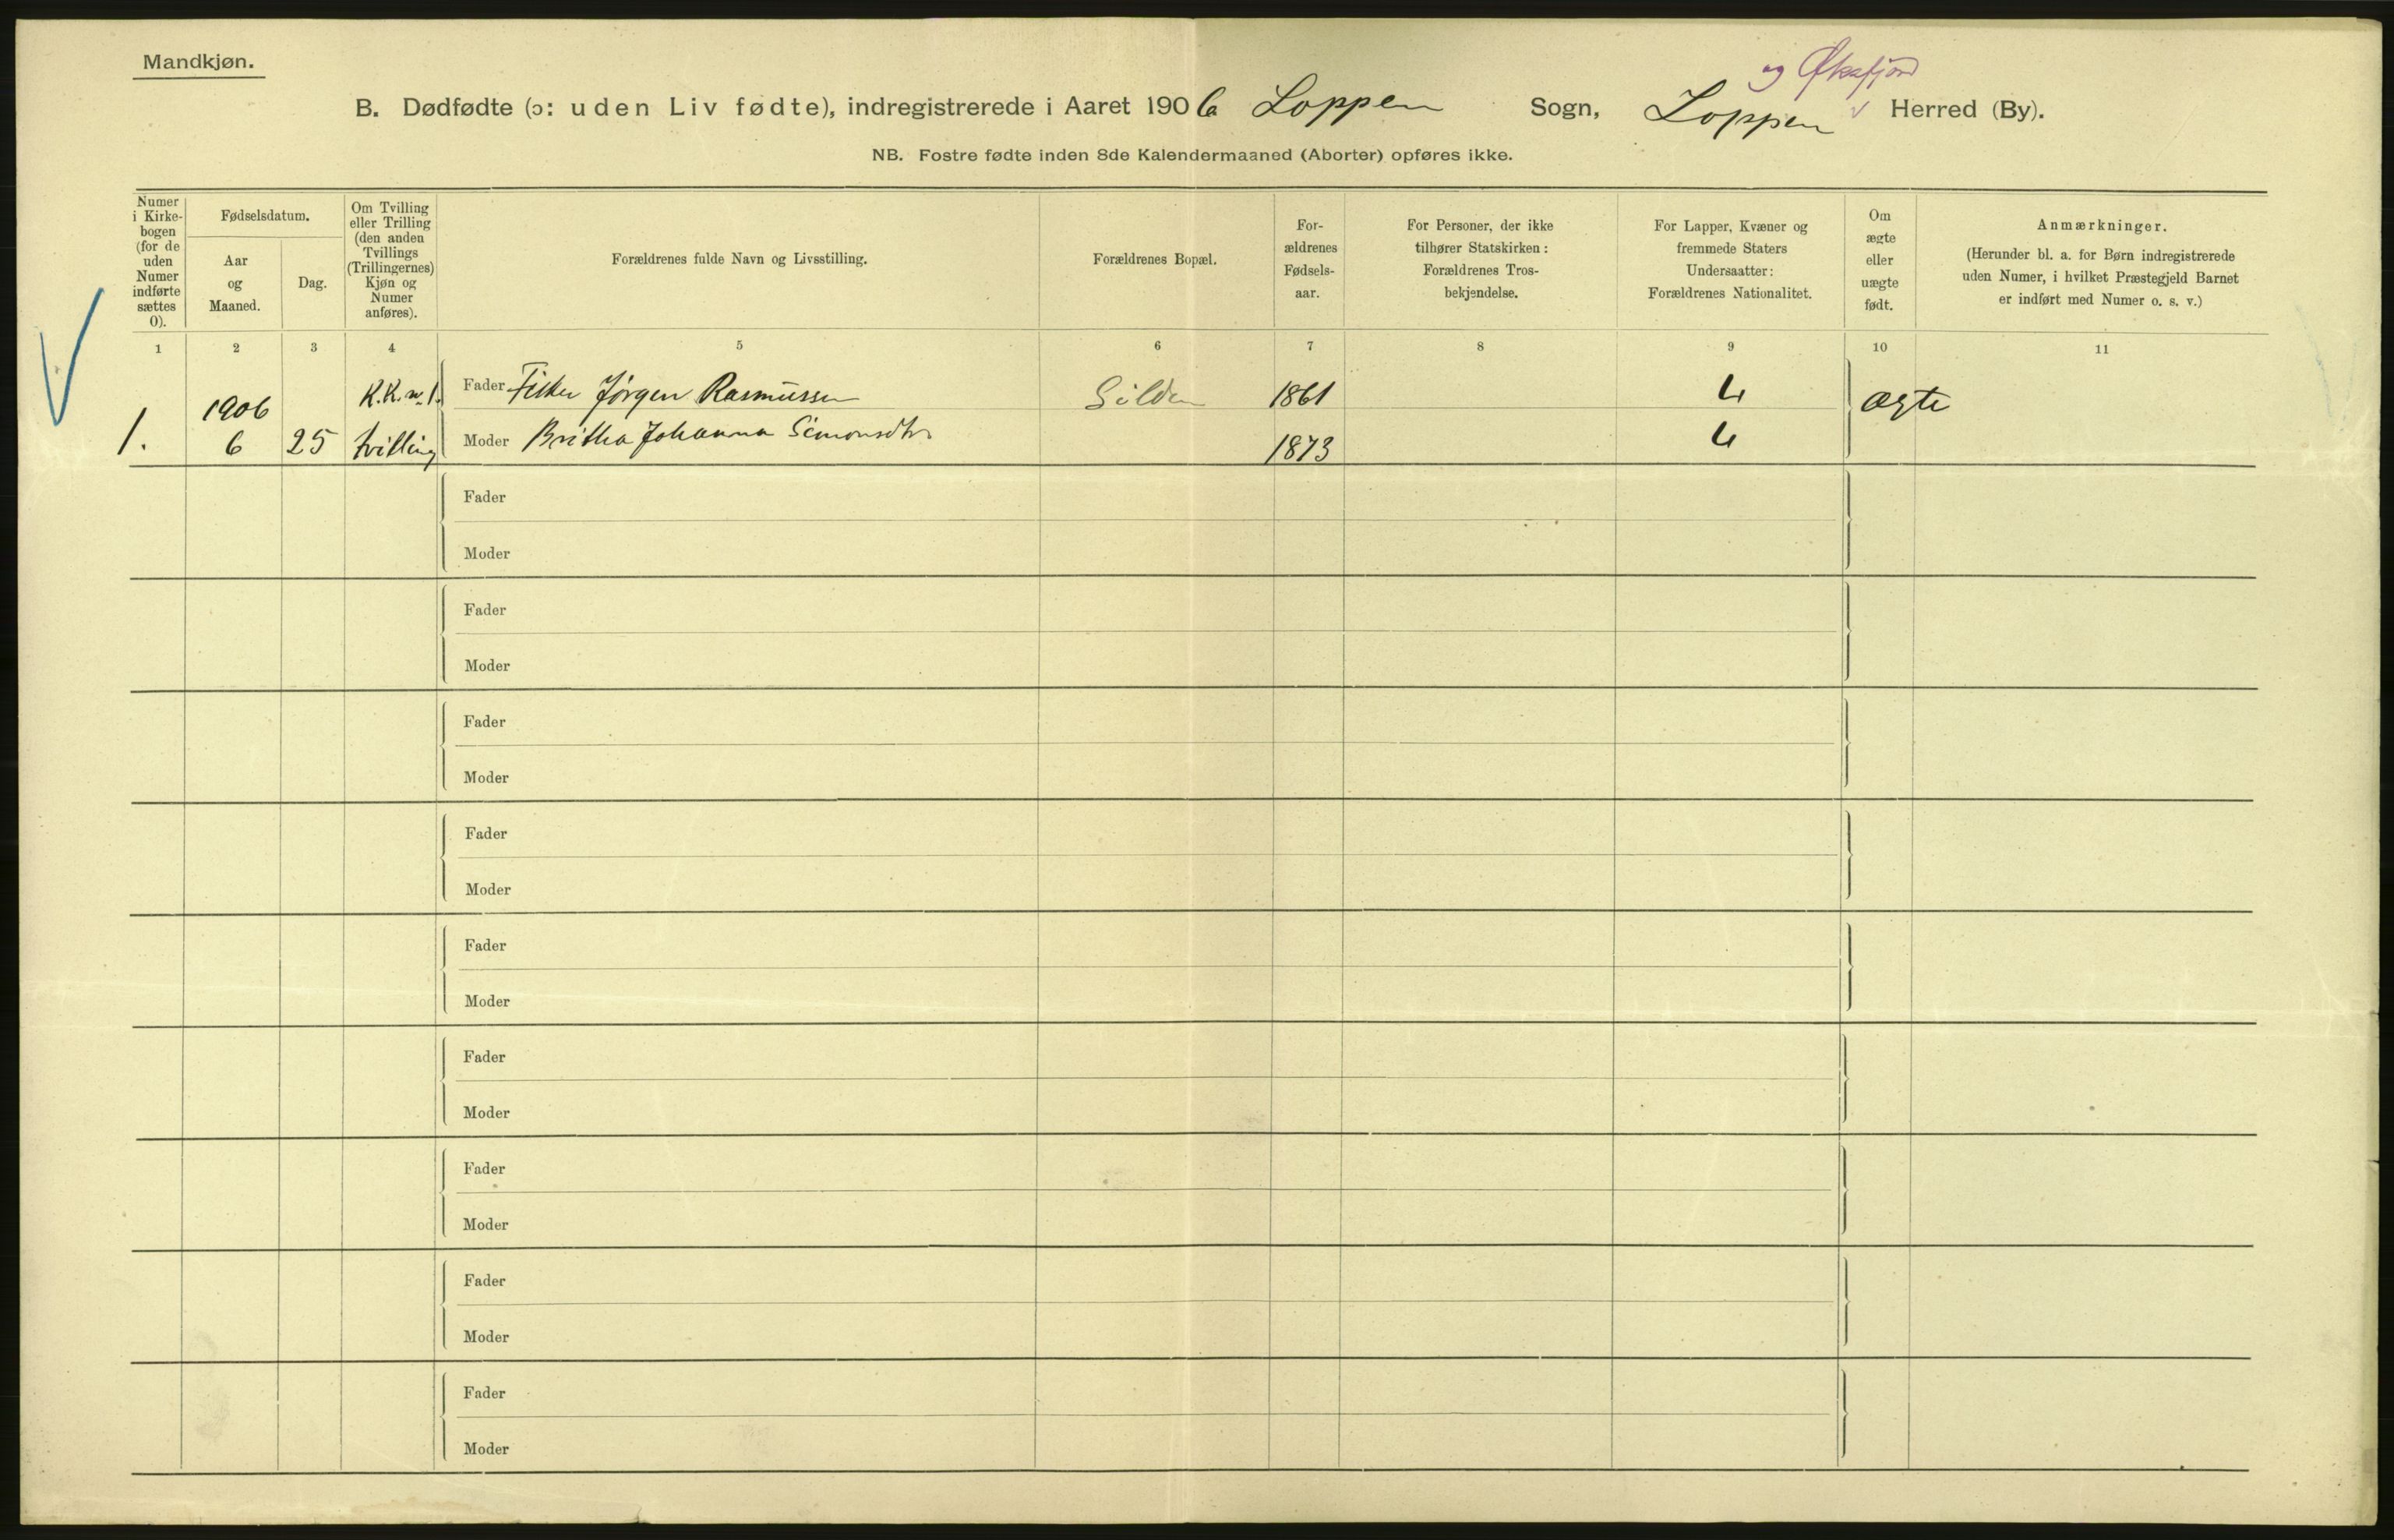 Mandkjøn.
og Øksfjord
B. Dødfødte (ɔ: uden Liv fødte), indregistrerede i Aaret 1906 Loppen Sogn, Loppen Herred (By).
NB. Fostre fødte inden 8de Kalendermaaned (Aborter) opføres ikke.
Numer
i Kirke-
bogen
(for de
uden
Numer
indførte
sættes
0).
Fødselsdatum.
Aar
og
Maaned.
Dag.
Om Tvilling
eller Trilling
(den anden
Tvillings
(Trillingernes)
Kjøn og
Numer
anføres).
Forældrenes fulde Navn og Livsstilling.
Forældrenes Bopæl.
For-
ældrenes
Fødsels-
aar.
For Personer, der ikke
tilhører Statskirken:
Forældrenes Tros-
bekjendelse.
For Lapper, Kvæner og
fremmede Staters
Undersaatter:
Forældrenes Nationalitet.
Om
ægte
eller
uægte
født.
Anmærkninger.
(Herunder bl. a. for Børn indregistrerede
uden Numer, i hvilket Præstegjeld Barnet
er indført med Numer o. s. v.)
1 2 3 4 5 6 7 8 9 10 11
1906 K.K. n. 1. Fader Fisker Jørgen Rasmussen Silden 1861 L ægte
1. 6 25 tvilling Moder Britha Johanna Simonsdtr 1873 L
Fader
Moder
Fader
Moder
Fader
Moder
Fader
Moder
Fader
Moder
Fader
Moder
Fader
Moder
Fader
Moder
Fader
Moder